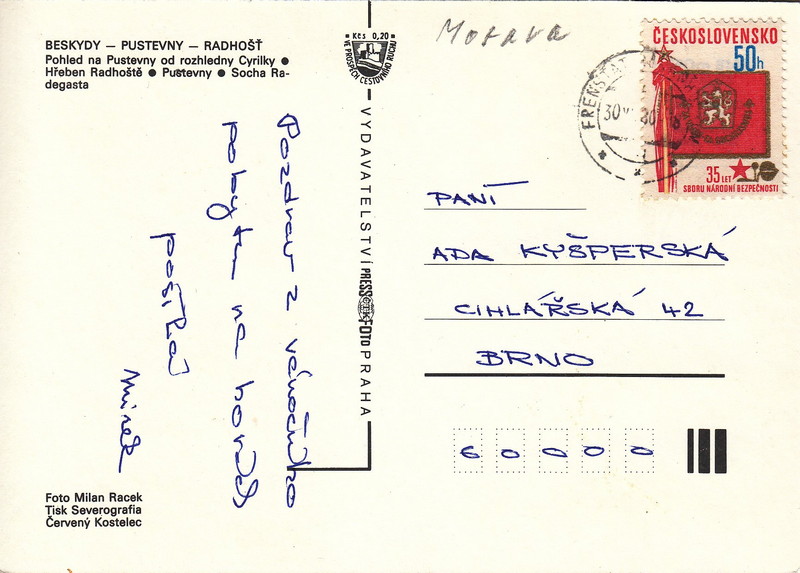 BESKYDY — PUSTEVNY — RADHOŠŤ
Pohled na Pustevny od rozhledny Cyrilky ●
Hřeben Radhoště ● Pustevny ● Socha Ra-
degasta
Kčs 0,20
VE PROSPĚCH CESTOVNÍHO RUCHU
Morava
ČESKOSLOVENSKO
50h
35 LET
SBORU NÁRODNÍ BEZPEČNOSTI
30
80
Pozdrav z vánočního
pobytu na horách
posílá
Mirek
VYDAVATELSTVÍ PRESSFOTO PRAHA
ČTK
PANÍ
ADA KYŠPERSKÁ
CIHLÁŘSKÁ 42
BRNO
60000
Foto Milan Racek
Tisk Severografia
Červený Kostelec